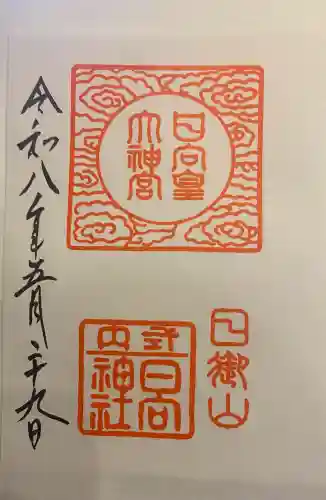 日向皇
大神宮
日御山
式内
日向
神社
令和八年五月二十九日